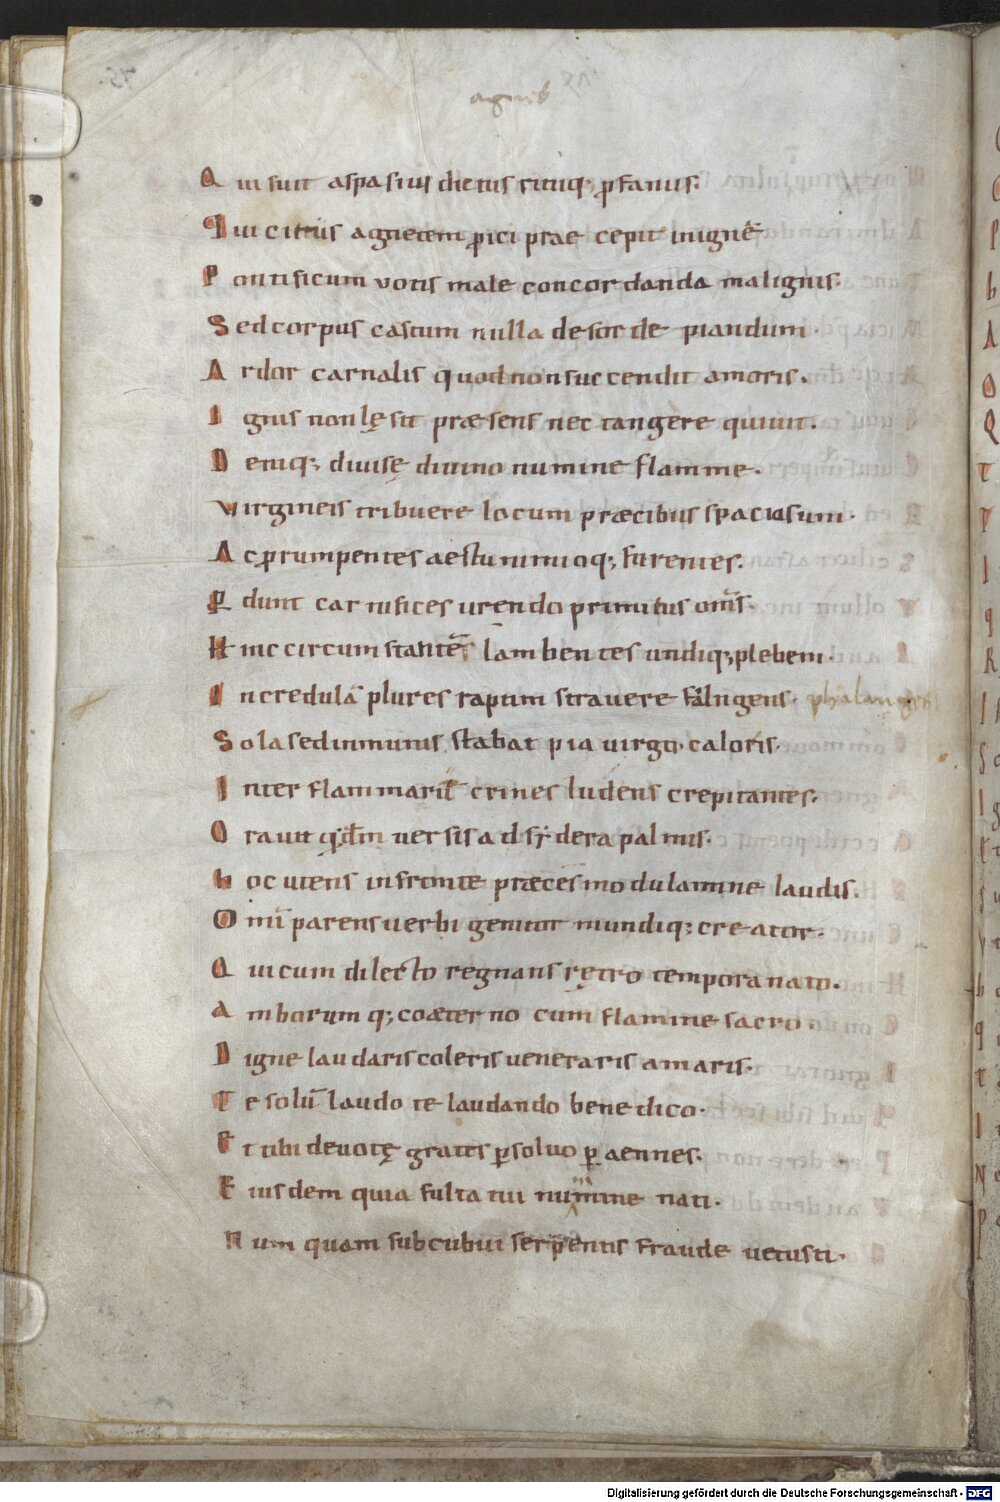 agnes
Qui fuit aspasius dictus rituq; ꝓfanus.
Iui citius agnetem ꝓici prae cepit in ignē
Pontificum votis male concordanda malignis.
Sed corpus castum nulla de sorde piandum.
Ardor carnalis quod non succendit amoris.
Ignis non lęsit præsens nec tangere quiuit.
Deniq; diuisę diuino numine flamme.
Virgineis tribuere locum præcibus spaciosum.
Ac ꝓrumpentes aestu nimioq; furentes.
Ꝑdunt carnifices urendo primitus om̄s.
Hinc circumstantes lambentes undiq; plebem.
Incredulā plures raptim strauere falngens. phalanges
Sola sed inmunis stabat pia uirgo. caloris.
Inter flammarū crines ludens crepitantes.
Orauit q̇dem uersis ad sẏdera palmis.
hoc utens insfronte præces modulamine laudis.
Omīparens uerbi genitor mundiq; creator.
Qui cum dilecto regnans rętro tempora nato.
Amborumq; coæterno cum flamine sacro.
Digne laudaris coleris veneraris amaris.
Te solū laudo te laudando benedico.
Et tibi deuotę grates ꝑsoluo ꝑaennes.
Eiusdem quia fulta tui numine nati.
Numquam subcubui serpentis fraude uetusti.
Digitalisierung gefördert durch die Deutsche Forschungsgemeinschaft - DFG